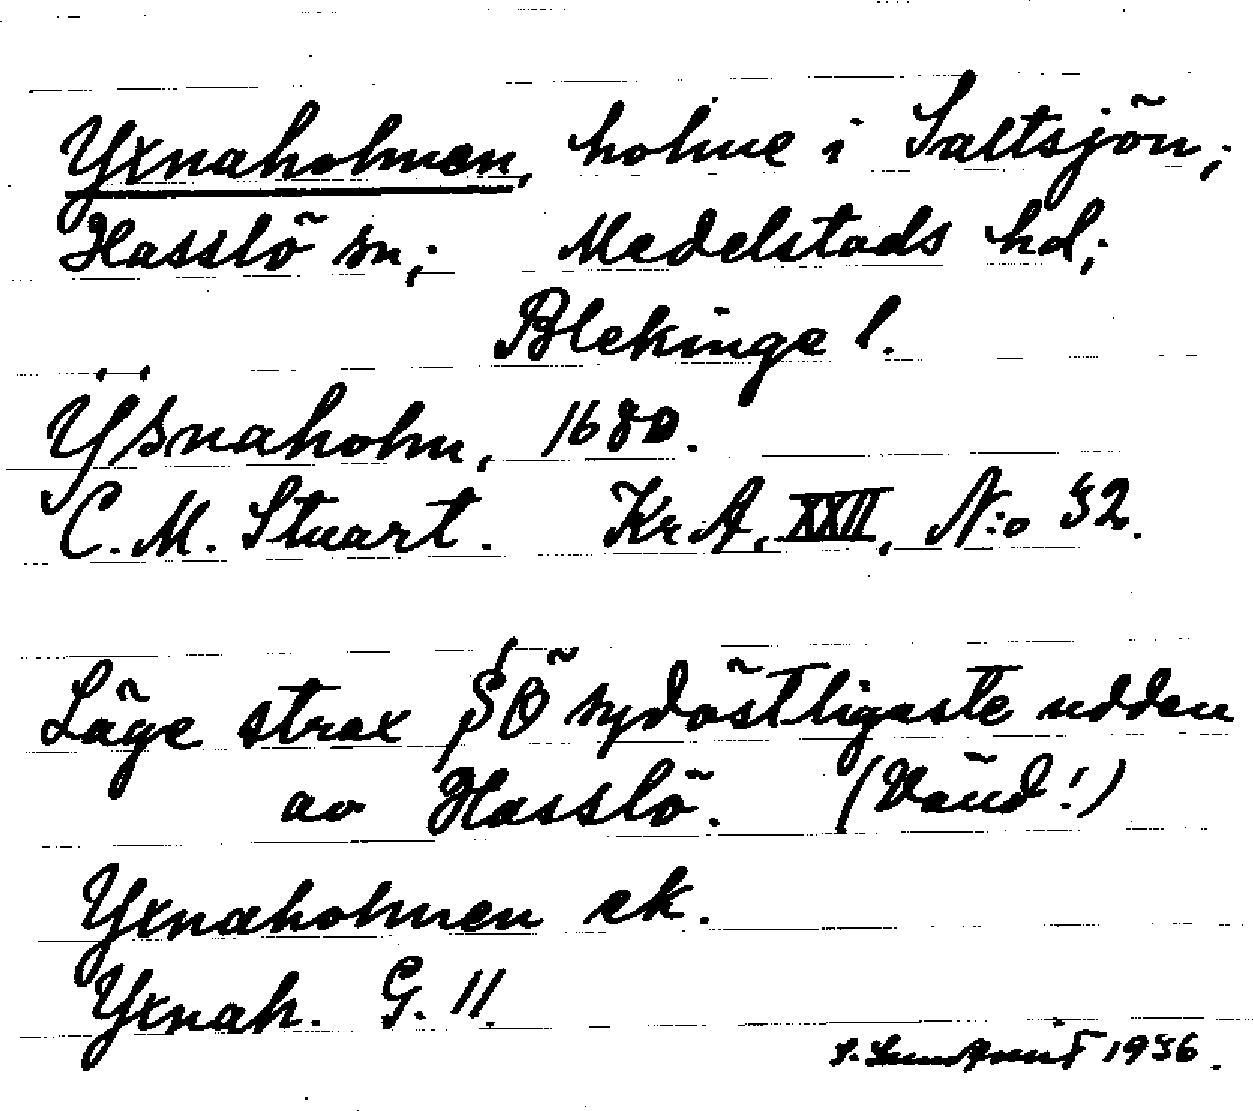 Yxnaholmen, holme i Saltsjön;
Hasslö sn; Medelstads hd;
Blekinge l.
Ÿsnaholm, 1680.
C. M. Stuart. Kr. A. XXII, N:o 52.
Läge strax SÖ sydöstligaste udden
av Hasslö. (Vänd!)
Yxnaholmen ek.
Yxnah. G. 11.
1936.